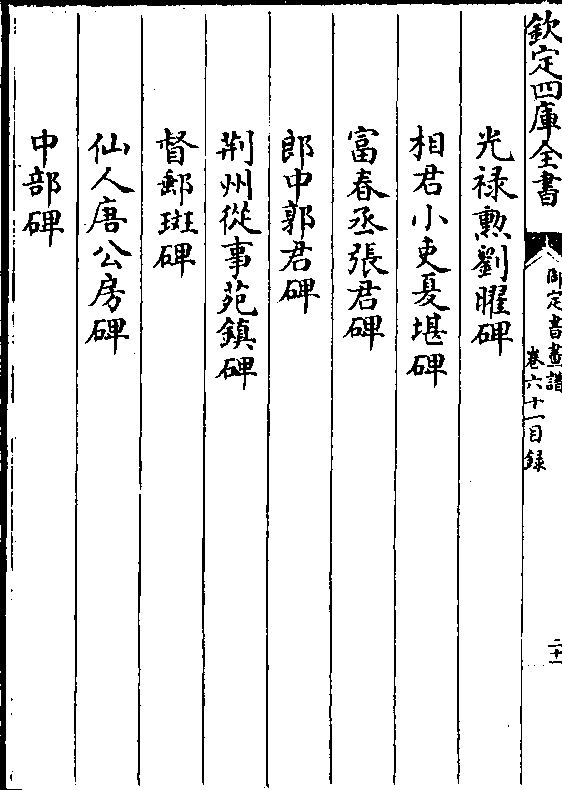 欽定四庫全書
御定書畫譜
卷六十一目錄
二十一
光禄勲劉曜碑
相君小史夏堪碑
富春丞張君碑
郎中郭君碑
荆州從事苑鎮碑
督郵斑碑
仙人唐公房碑
中部碑